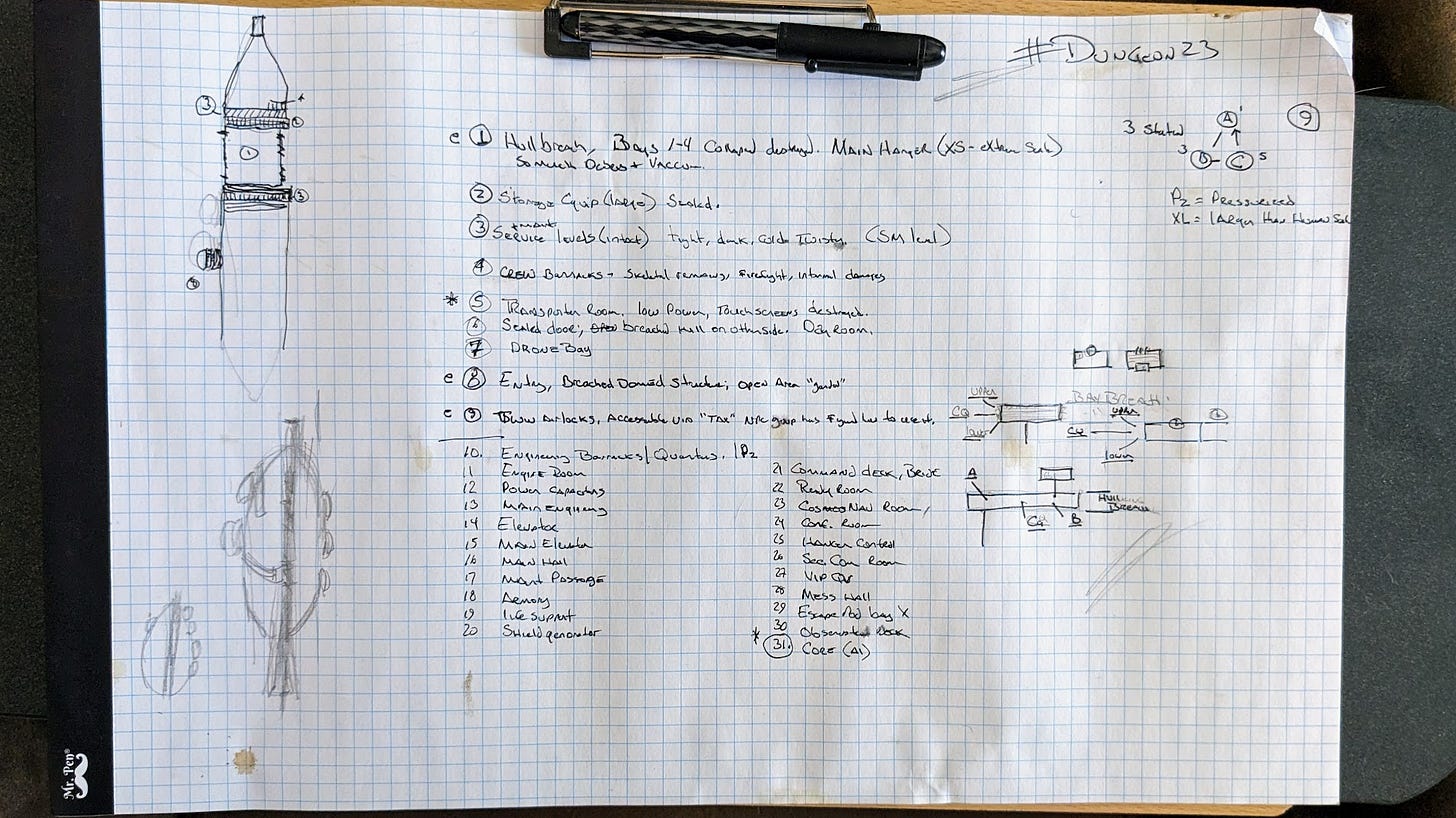 #DUNGEON23
9
3 Stated
A 1
3 B - C 5
PZ = Pressurized
XL = larger than Human
e 1 Hull breach, Bays 1-4 destroyed. MAIN Hanger (XS-extra
Debris + Vaccum.
2 Storage Equip (large) Sealed.
3 Service levels (intact) tight, dark, Twisty. (SM level)
4 CREW Barracks - Skeletal remains, firefight, internal damages
* 5 Transporter Room, low Power, Touchscreens destroyed.
6 Sealed door, breached hull on otherside. Day Room.
7 DRONE Bay
e 8 Entry, Breached Domed Structure, open Area "garden"
e 9 Airlocks, Accessable via "TAX" NPC group has figured how to use it.
10. Engineering Barracks/Quarters. PZ
11 Engine Room
12 Power Capacitors
13 Main Engineering
14 Elevator
15 MAIN Elevator
16 MAIN HALL
17 Maint Passage
18 Armory
19 life Support
20 Shield generator
21 COMMAND DECK, Bridge
22 Ready Room
23 COSMO NAV ROOM,
24 Conf. Room
25 Control
26 Sec Com Room
27 VIP
28 Mess Hall
29 Escape Pod bay X
30 Deck
* 31. CORE (AI)
UPPER
CQ
lower
UPPER
CQ
lower
A
CQ
B
Hull
Breach
3
4
2
1
3
8
Mr. Pen®